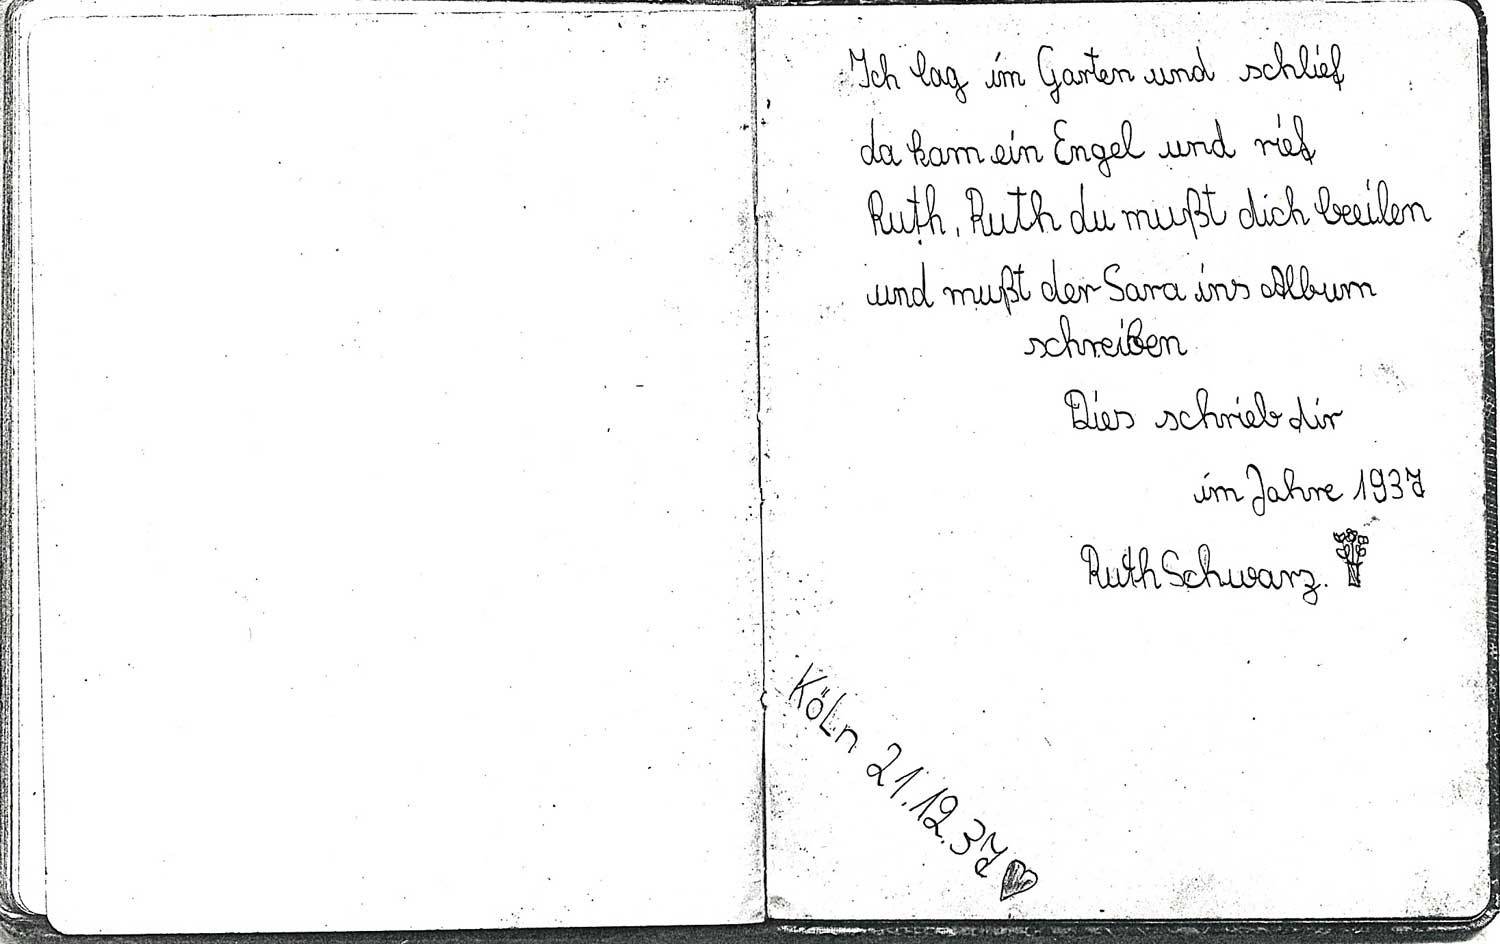 Ich lag im Garten und schlief
da kam ein Engel und rief
Ruth, Ruth du mußt dich beeilen
und mußt der Sara ins Album
schreiben
Dies schrieb dir
im Jahre 1937
Ruth Schwarz.
Köln 21.12.37